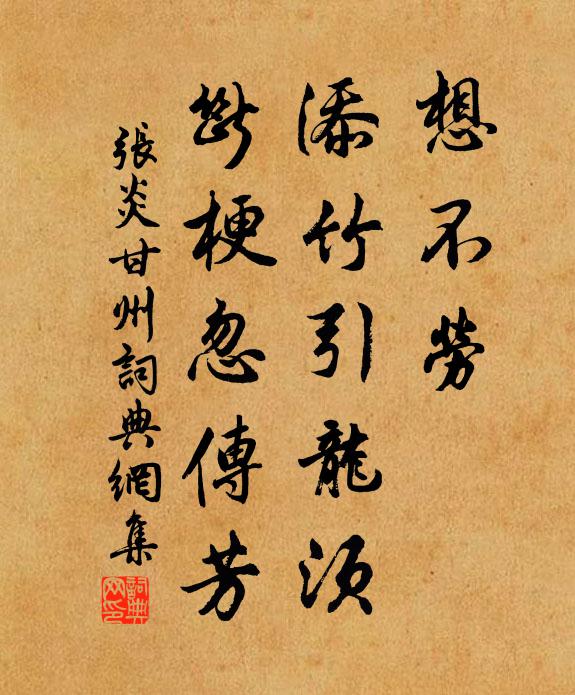 想不勞
添竹引龍須
斷梗忽傳芳
張炎甘州詞典網集
詞典網印